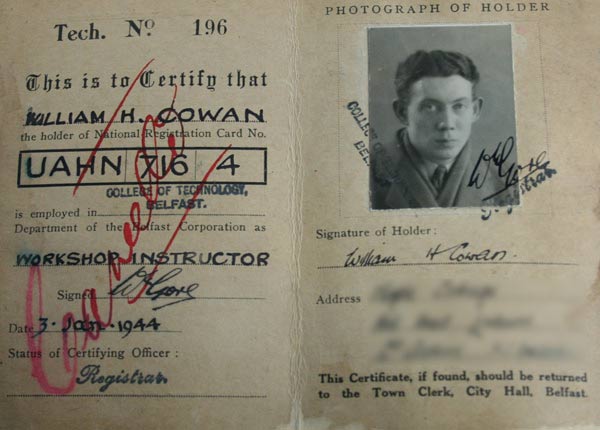 Tech. No 196
This is to Certify that
WILLIAM H. COWAN
the holder of National Registration Card No.
UAHN 716 4
COLLEGE OF TECHNOLOGY,
BELFAST.
is employed in
Department of the Belfast Corporation as
WORKSHOP INSTRUCTOR
Signed W H Gore
Date 3. Jan. 1944
Status of Certifying Officer :
Registrar
Cancelled
PHOTOGRAPH OF HOLDER
COLLEGE OF
BELFAST
W H Gore
Registrar
Signature of Holder :
William H Cowan.
Address
This Certificate, if found, should be returned
to the Town Clerk, City Hall, Belfast.